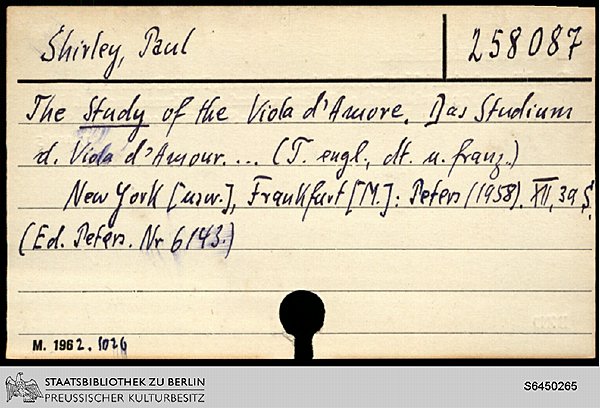 Shirley, Paul
258087
The Study of the Viola d'Amore. Das Studium
d. Viola d'Amour. ... (T. engl., dt. u. franz.)
New York [usw.], Frankfurt [M.]: Peters (1958). XII, 39 S.
(Ed. Peters. Nr 6143.)
M. 1962. 1026
STAATSBIBLIOTHEK ZU BERLIN
PREUSSISCHER KULTURBESITZ
S6450265